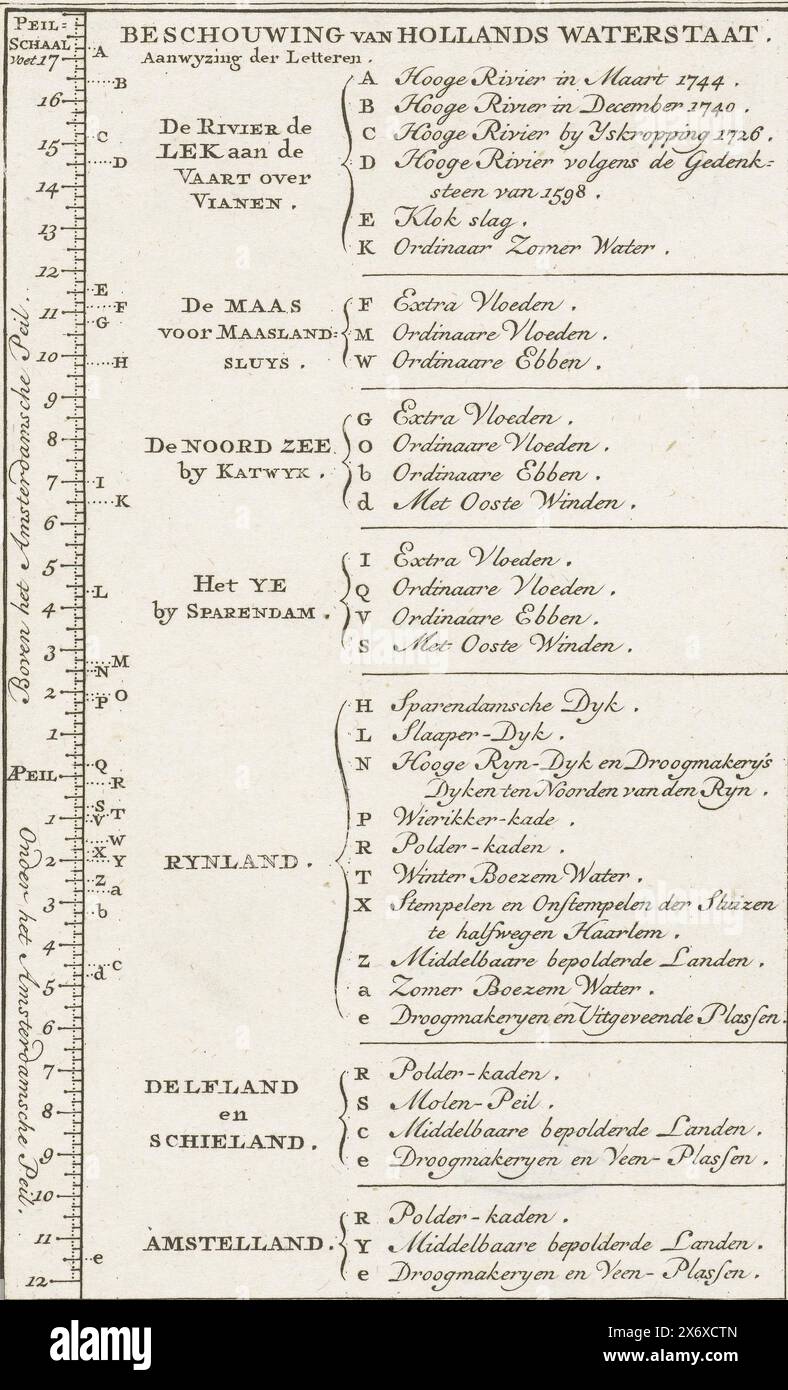 PEIL=
SCHAAL
Voet 17
16
15
14
13
12
11
10
9
8
7
6
5
4
3
2
1
Æ PEIL
1
2
3
4
5
6
7
8
9
10
11
12
Boven het Amsterdamsche Peil.
Onder het Amsterdamsche Peil.
A
B
C
D
E
F
G
H
I
K
L
M
N
O
P
Q
R
S
T
V
W
X
Y
Z
a
b
c
d
e
BESCHOUWING VAN HOLLANDS WATERSTAAT.
Aanwyzing der Letteren.
De RIVIER de
LEK aan de
VAART over
VIANEN.
A Hooge Rivier in Maart 1744.
B Hooge Rivier in December 1740.
C Hooge Rivier by Yskropping 1726.
D Hooge Rivier volgens de Gedenk=
steen van 1598.
E Klok slag.
K Ordinaar Zomer Water.
De MAAS
voor MAASLAND=
SLUYS.
F Extra Vloeden.
M Ordinaare Vloeden.
W Ordinaare Ebben.
De NOORD ZEE
by KATWYK.
G Extra Vloeden.
O Ordinaare Vloeden.
b Ordinaare Ebben.
d Met Ooste Winden.
Het YE
by SPARENDAM.
I Extra Vloeden.
Q Ordinaare Vloeden.
V Ordinaare Ebben.
S Met Ooste Winden.
RYNLAND.
H Sparendamsche Dyk.
L Slaaper-Dyk.
N Hooge Ryn-Dyk en Droogmakery's
Dyken ten Noorden van den Ryn.
P Wierikker-kade.
R Polder-kaden.
T Winter Boezem Water.
X Stempelen en Onstempelen der Sluizen
te halfwegen Haarlem.
Z Middelbaare bepolderde Landen.
a Zomer Boezem Water.
e Droogmakeryen en Uitgeveende Plassen.
DELFLAND
en
SCHIELAND.
R Polder-kaden.
S Molen-Peil.
c Middelbaare bepolderde Landen.
e Droogmakeryen en Veen-Plassen.
AMSTELLAND.
R Polder-kaden.
Y Middelbaare bepolderde Landen.
e Droogmakeryen en Veen-Plassen.
alamy
Image ID: 2X6XCTN
www.alamy.com